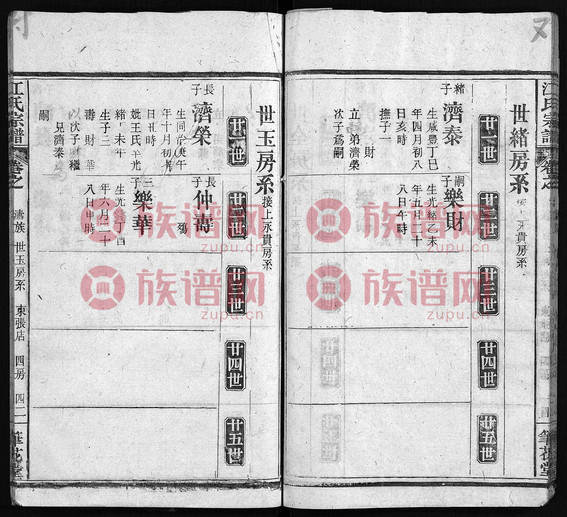 世緒房系 接上永貴房系
廿一世
廿二世
廿三世
廿四世
廿五世
緒子 濟泰
生咸豐丁巳
年四月初八
日亥時
撫子一
財
立弟濟榮
次子爲嗣
嗣子 樂財
生光緒乙未
年五月十
八日午時
江氏宗譜
筆花堂
世玉房系 接上永貴房系
廿一世
廿三世
廿四世
廿五世
長子 濟榮
生同治庚午
年十月初
日丑時
娶王氏生光
緒
生子三
壽 財 華
以次子財繼
兄濟泰
嗣
長子 仲壽
殤
三子 樂華
生光緒丁酉
年六月二十
八日申時
江氏宗譜
世玉房系
東張店
四房
四二
筆花堂
族谱网
zupu.cn